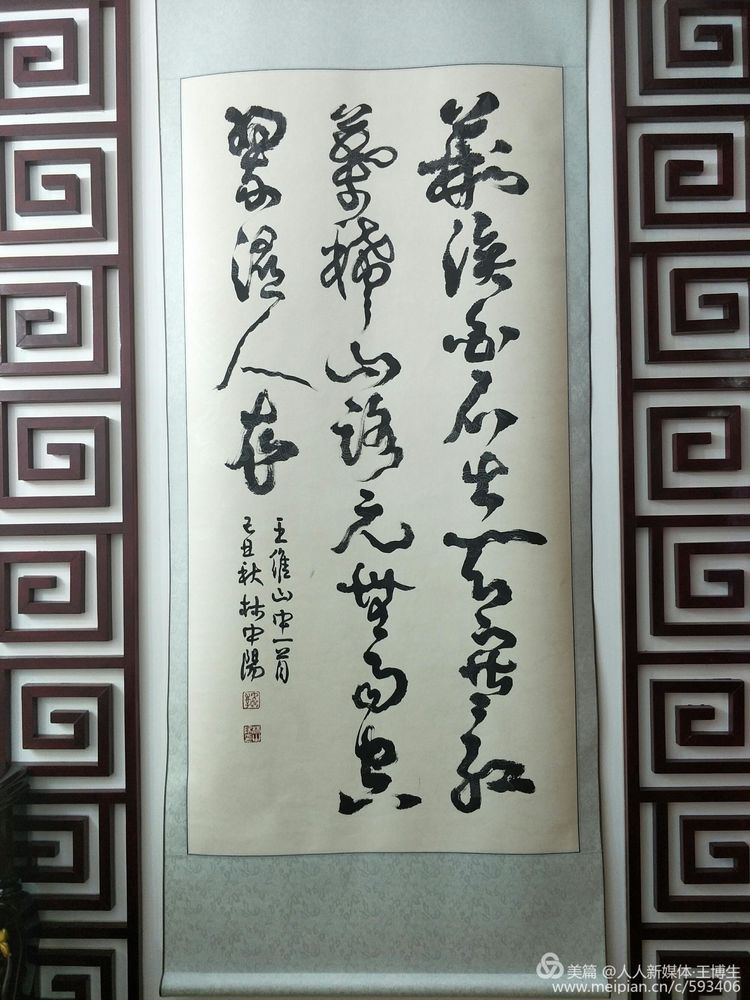 荊溪白石出天寒紅
葉稀山路元無雨空
翠濕人衣
王維山中一首
己丑秋林中陽
美篇 @人人新媒体·王博生
www.meipian.cn/c/593406